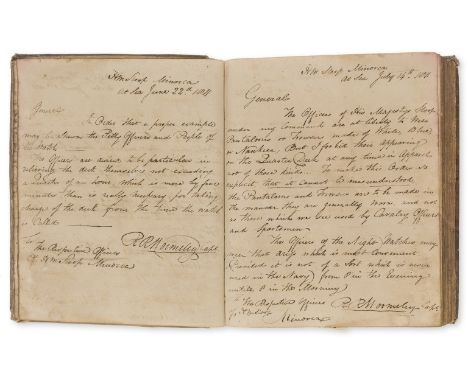 HM Sloop Minorca
at Sea June 22nd
General
In Order that a proper example
may be shewn the Petty Officers and People of
the Watch
The Officers are desired to be particular in
relieving the deck themselves not exceeding
a quarter of an hour, which is more by five
minutes than is really necessary for taking
charge of the deck from the time the watch
is Called
To
The Respective Officers
of HM Sloop Minorca
HM Sloop Minorca
at Sea July 14th
General
The Officers of His Majestys Sloop
under my Command are at Liberty to Wear
Pantaloons or Trowsers made of White, Blue
or Nankeen, But I forbid their appearing
on the Quarter Deck at any time in Apparel
not of those kinds. To make this Order so
explicit that it cannot be misunderstood,
the Pantaloons and Trowsers are to be made in
the manner they are generally Worn, and not
as those which are worn by Cavalry Officers
and Sportsmen
The Officers of the Night Watches may
wear that dress which is most convenient
Provided it is not of a sort which is never
used in the Navy from 8 in the Evening
until 8 in the Morning
The Respective Officers
Minorca